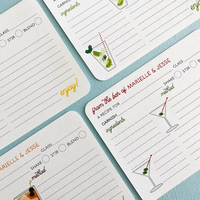 SHAKE STIR BLEND
enjoy!
GARNISH
ingredients
GLASS
MARIELLE & JESSE
SHAKE STIR BLEND
method
from the bar of MARIELLE & JESSE
A RECIPE FOR
GARNISH
ingredients
method